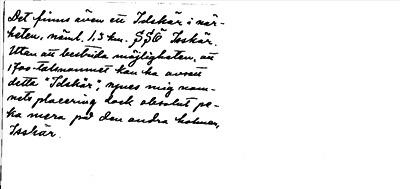 Det finns även ett Idskär i när-
heten, näml. 1,3 km. SSÖ Isskär.
Utan att bestrida möjligheten, att
1700-talsnamnet kan ha avsett
detta "Idskär", synes mig nam-
nets placering dock absolut pe-
ka mera på den andra holmen,
Isskär.